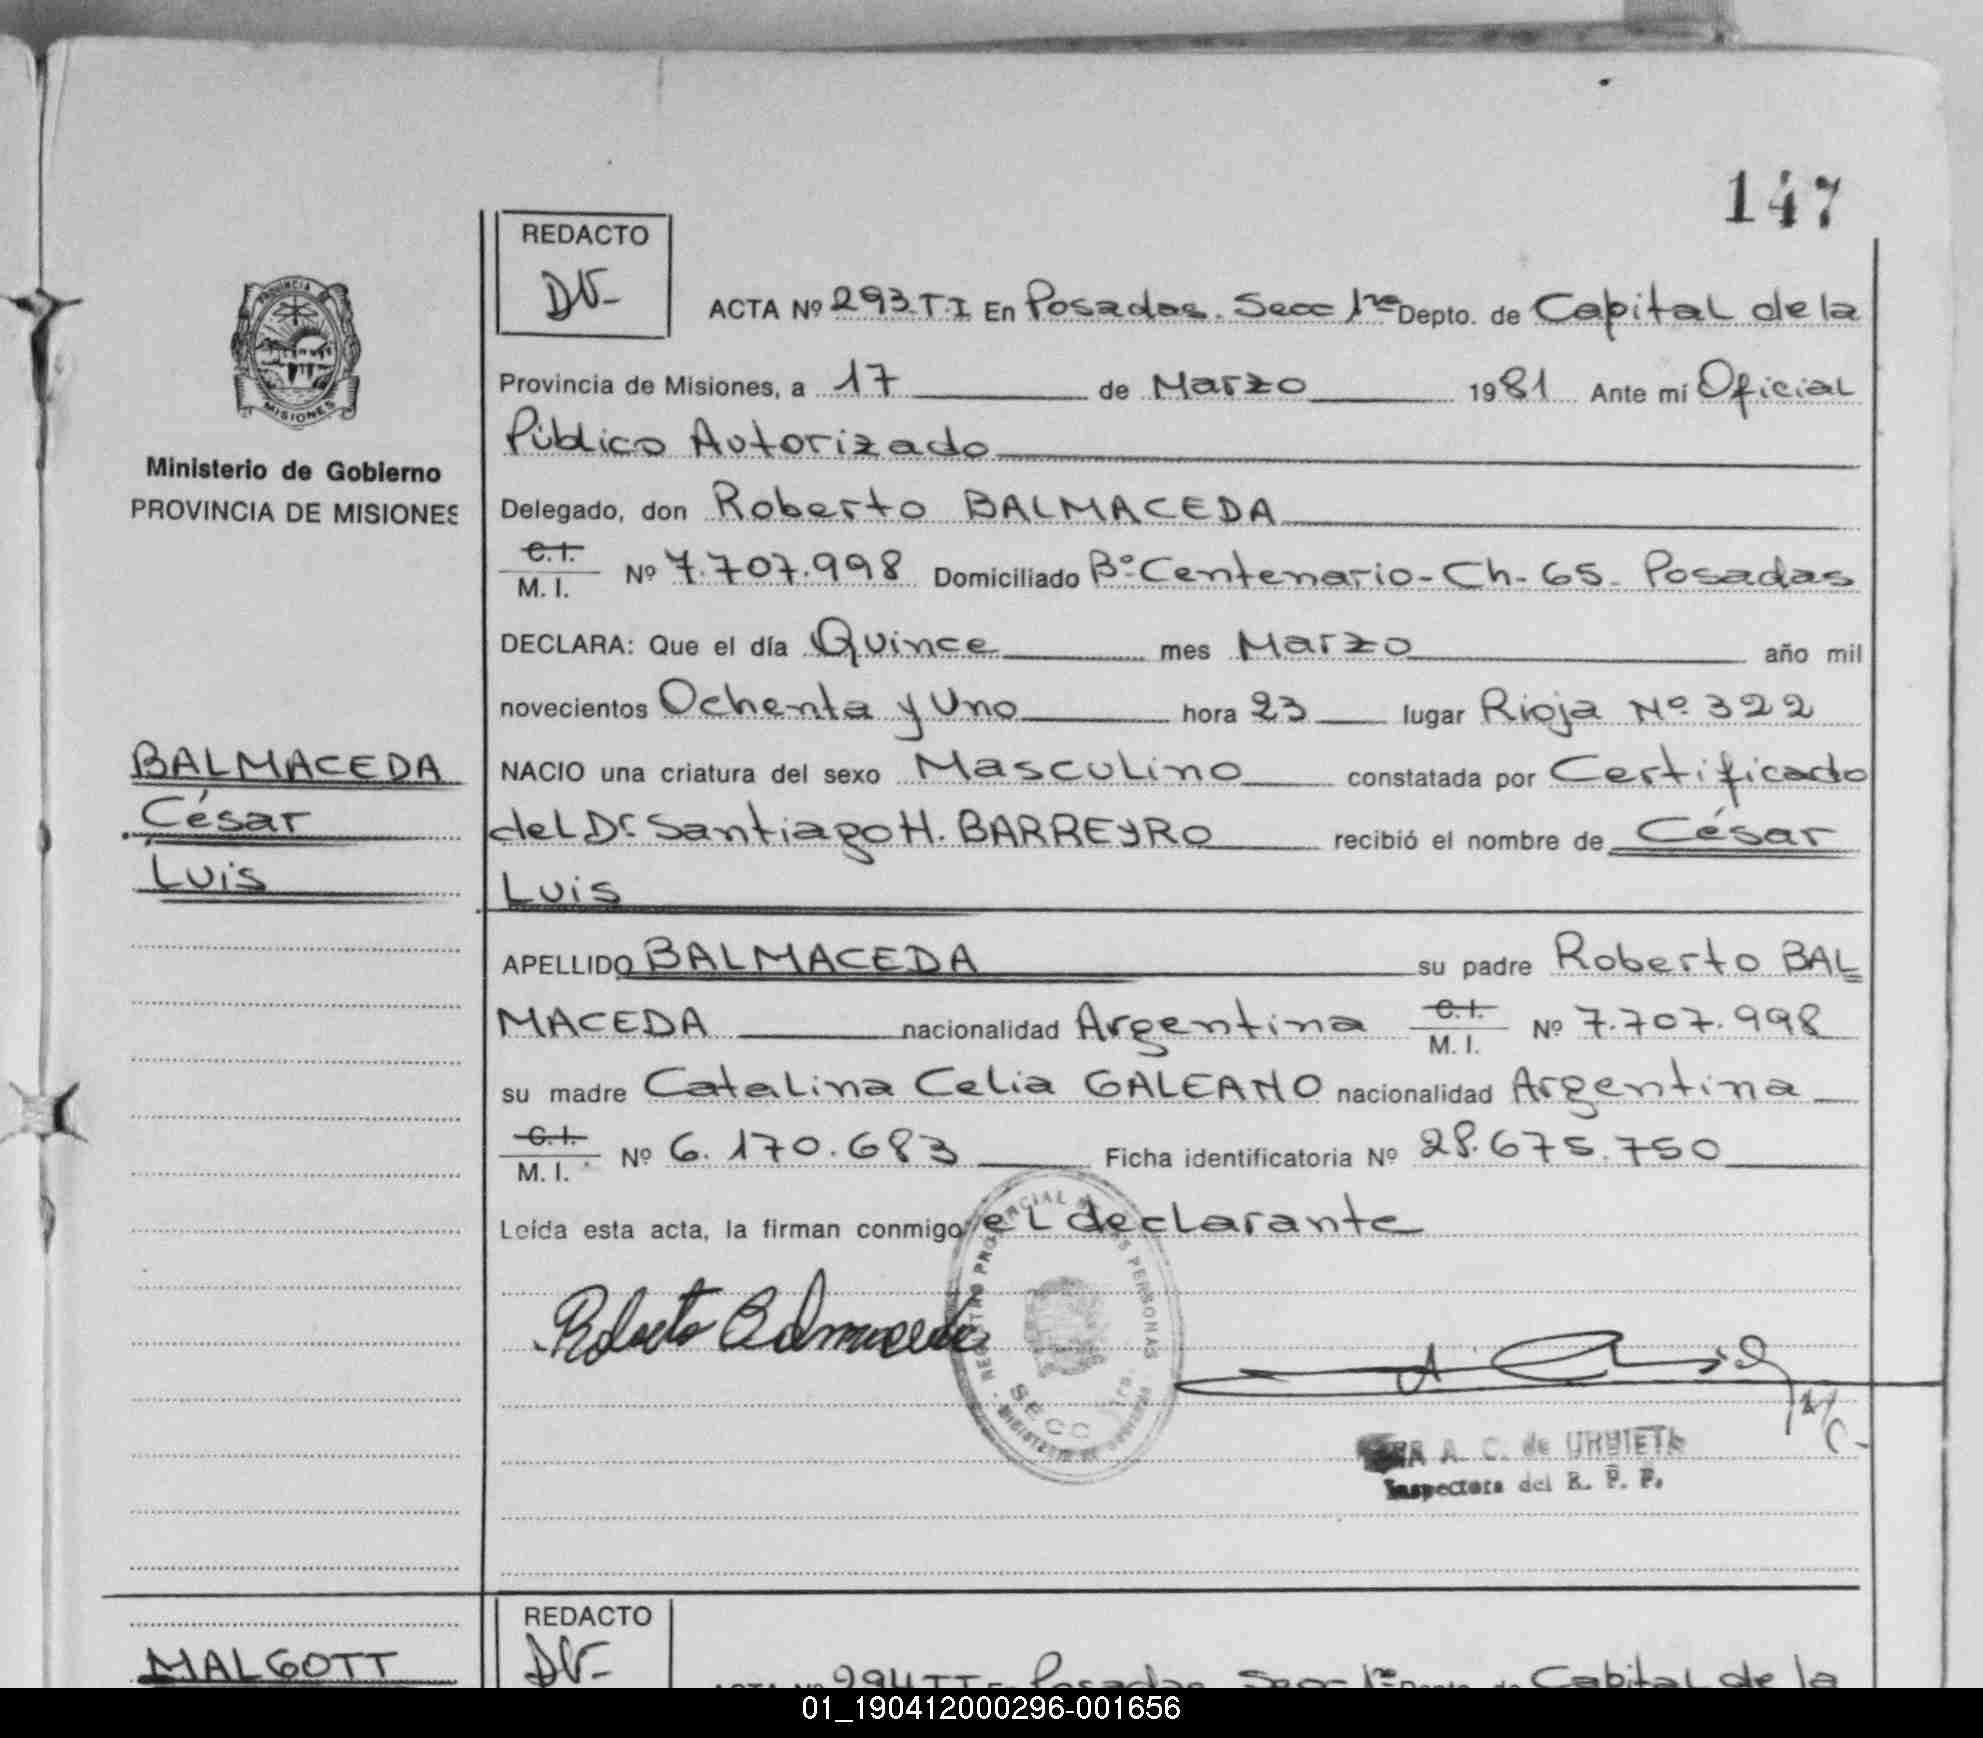 147
REDACTO
DV-
PROVINCIA DE
MISIONES
Ministerio de Gobierno
PROVINCIA DE MISIONES
ACTA Nº 293.T.I En Posadas. Secc 1ra Depto. de Capital de la
Provincia de Misiones, a 17 de Marzo 1981 Ante mí Oficial
Público Autorizado
Delegado, don Roberto BALMACEDA
C.I.
M. I. Nº 7.707.998 Domiciliado Bº Centenario-Ch-65- Posadas
DECLARA: Que el día Quince mes Marzo año mil
novecientos Ochenta y Uno hora 23 lugar Rioja Nº 322
NACIO una criatura del sexo Masculino constatada por Certificado
del Dr. Santiago H. BARREYRO recibió el nombre de César
Luis
BALMACEDA
César
Luis
APELLIDO BALMACEDA su padre Roberto BAL
MACEDA nacionalidad Argentina C.I. M. I. Nº 7.707.998
su madre Catalina Celia GALEANO nacionalidad Argentina
C.I.
M. I. Nº 6.170.683 Ficha identificatoria Nº 28.675.750
Leída esta acta, la firman conmigo el declarante
Roberto Balmaceda
REGISTRO PROVINCIAL DE LAS PERSONAS
SECC 1ra.
A. C. de URBIETA
Inspectora del R. P. P.
REDACTO
DV-
MALGOTT
ACTA Nº 294 TI En Posadas Secc 1ra Depto. de Capital de la
01_190412000296-001656